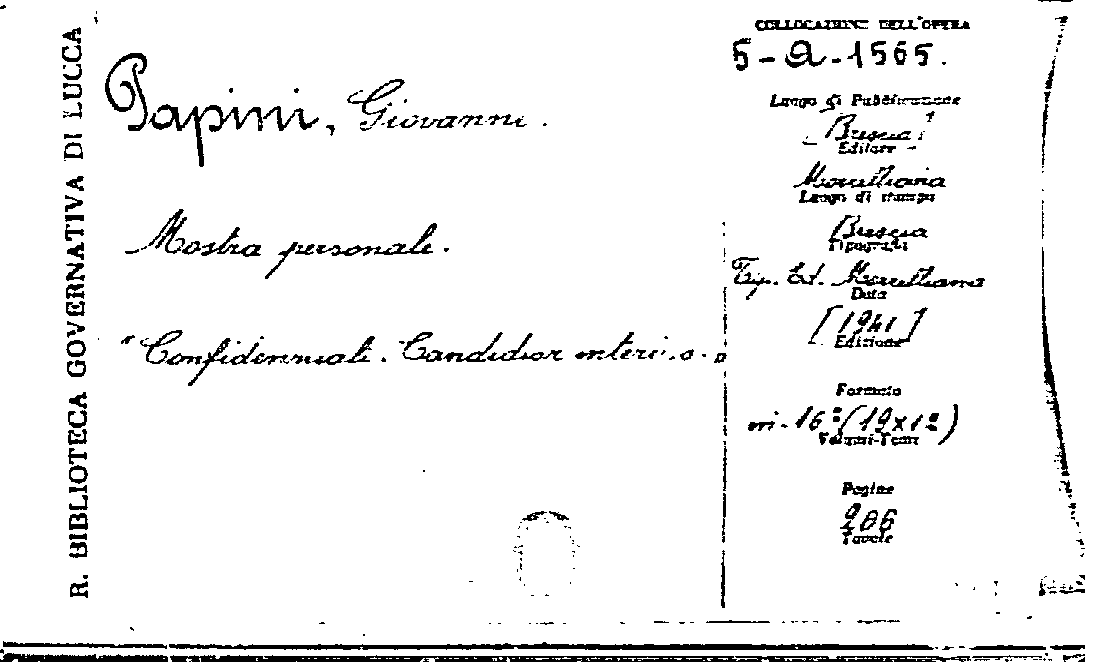 R. BIBLIOTECA GOVERNATIVA DI LUCCA
Papini, Giovanni.
Mostra personale.
"Confidenziali. Candidior interi.o.„
COLLOCAZIONE DELL'OPERA
5-Q-1565.
Luogo di Pubblicazione
[Brescia]
Editore
Morcelliana
Luogo di stampa
Brescia
Tipografia
Tip. Ed. Morcelliana
Data
[1941]
Edizione
Formato
in-16°(19x12)
Volumi-Tomi
Pagine
206
Tavole